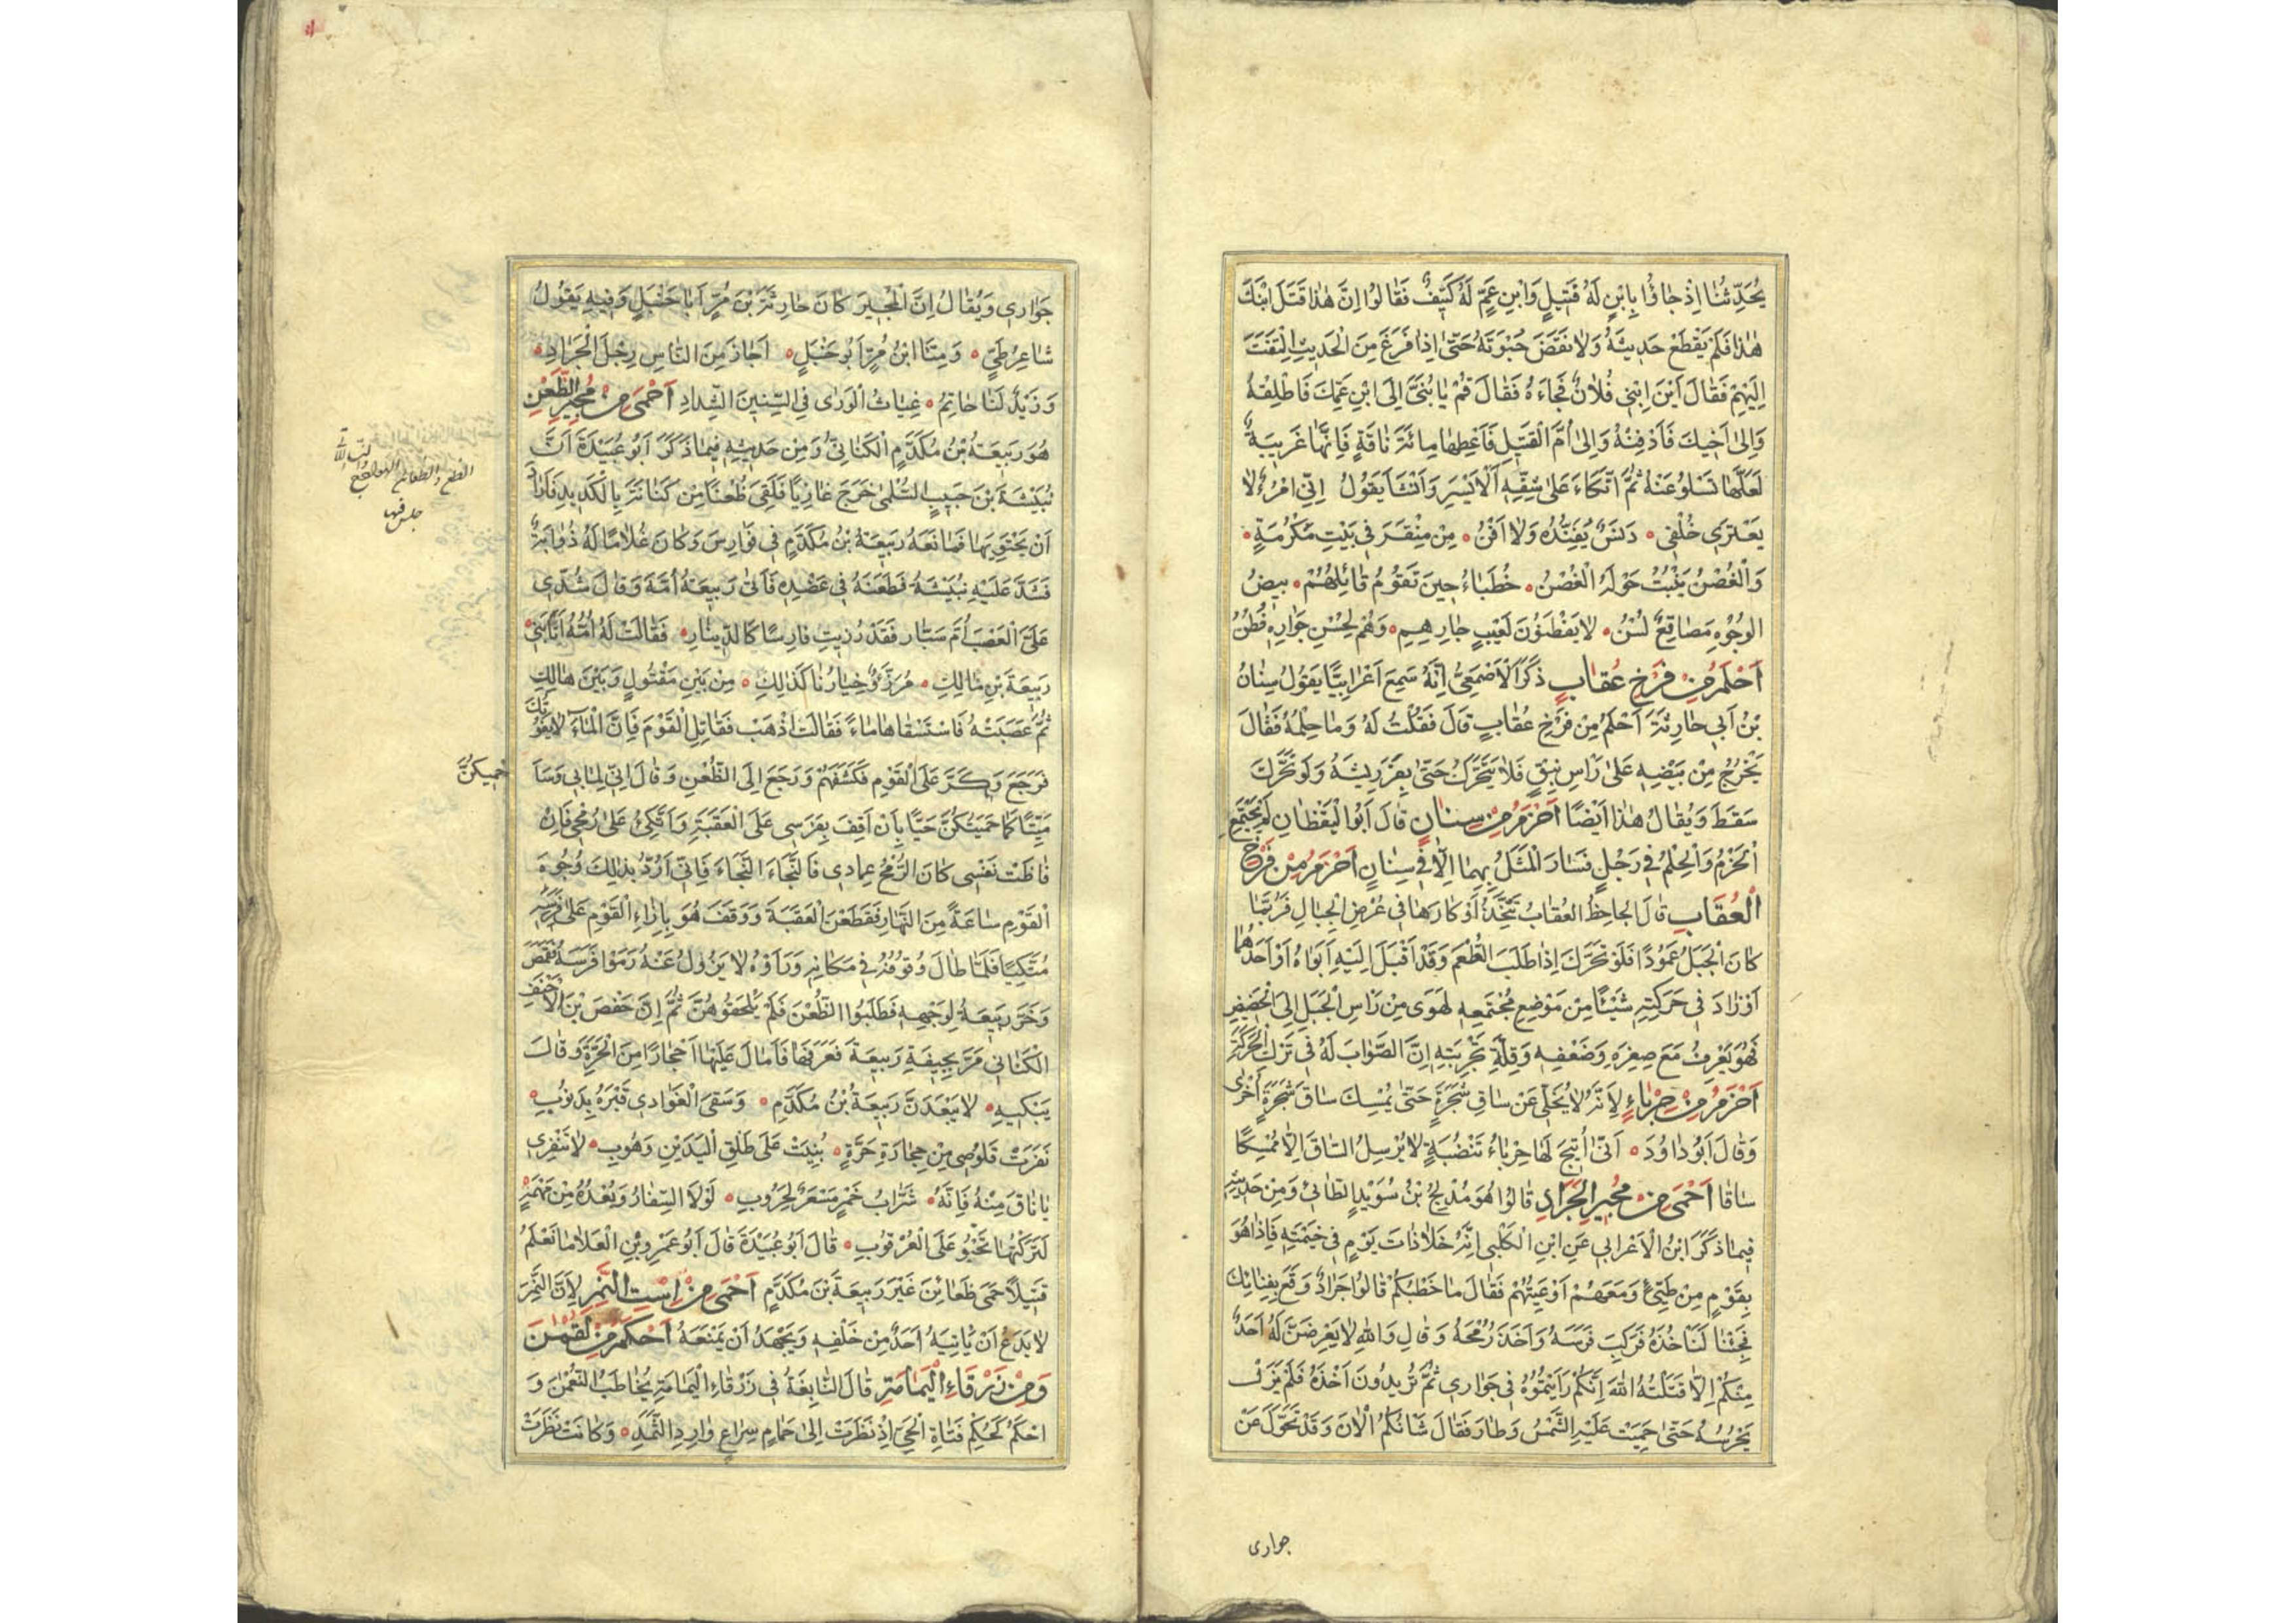 يُحَدِّثُنَا اِذْ جَاؤُا بِابْنٍ لَهُ قَتِيلٍ وَابْنِ عَمٍّ لَهُ كَتِيفٌ فَقَالُوا اِنَّ هٰذَا قَتَلَ ابْنَكَ
هٰذَا فَلَمْ يَقْطَعْ حَدِيثَهُ وَلَا نَقَضَ حُبْوَتَهُ حَتّٰى اِذَا فَرَغَ مِنَ الْحَدِيثِ الْتَفَتَ
اِلَيْهِمْ فَقَالَ اَيْنَ اِبْنِي فُلَانٌ فَجَاءَهُ فَقَالَ قُمْ يَا بُنَيَّ اِلَى ابْنِ عَمِّكَ فَاَطْلِقْهُ
وَاِلٰى اَخِيكَ فَادْفِنْهُ وَاِلٰى اُمِّ الْقَتِيلِ فَاَعْطِهَا مِائَةَ نَاقَةٍ فَاِنَّهَا غَرِيبَةٌ
لَعَلَّهَا تَسْلُو عَنْهُ ثُمَّ اتَّكَاءَ عَلٰى شِقِّهِ الْاَيْسَرِ وَاَنْشَأَ يَقُولُ اِنِّي امْرُءٌ لَا
يَعْتَرِي خُلْقِي دَنَسٌ يُفَنِّدُهُ وَلَا اَفْنُ مِنْ مِنْقَرَ فِي بَيْتِ مَكْرُمَةٍ
وَالْغُصْنُ يَنْبُتُ حَوْلَهُ الْغُصْنُ خُطَبَاءُ حِينَ تَقُومُ قَائِلُهُمْ بِيضُ
الْوُجُوهِ مَصَاقِعٌ لُسْنُ لَا يَفْطَنُونَ لَعَيْبِ جَارِهِمِ وَهُمُ لِحُسْنِ جَوَارِهِ فُطْنُ
اَحْلَمُ مِنْ فَرْخِ عُقَابٍ ذَكَرَ الْاَصْمَعِيُّ اَنَّهُ سَمِعَ اَعْرَابِيًّا يَقُولُ سِنَانُ
بْنُ اَبِي حَارِثَةَ اَحْلَمُ مِنْ فَرْخِ عُقَابٍ قَالَ فَقُلْتُ لَهُ وَمَا حِلْمُهُ فَقَالَ
يَخْرُجُ مِنْ بَيْضِهِ عَلٰى رَاْسِ نِيقٍ فَلَا يَتَحَرَّكُ حَتّٰى يَفِرَ رِيشُهُ وَلَوْ تَحَرَّكَ
سَقَطَ وَيُقَالُ هٰذَا اَيْضًا اَحْزَمُ مِنْ سِنَانٍ قَالَ اَبُو الْيَقْظَانِ لَمْ يَجْتَمِعِ
الْحَزْمُ وَالْحِلْمُ فِي رَجُلٍ فَسَارَ الْمَثَلُ بِهِمَا اِلَّا فِي سِنَانٍ اَحْزَمُ مِنْ فَرْخِ
الْعُقَابِ قَالَ الْجَاحِظُ الْعُقَابُ تَتَّخِذُ اَوْكَارَهَا فِي عُرْضِ الْجِبَالِ فَرُبَّمَا
كَانَ الْجَبَلُ عَمُودًا فَلَوْ تَحَرَّكَ اِذَا طَلَبَ الطُّعْمَ وَقَدْ اَقْبَلَ اِلَيْهِ اَبَوَاهُ اَوْ اَحَدُهُمَا
اَوْ زَادَ فِي حَرَكَتِهِ شَيْئًا مِنْ مَوْضِعِ مُجْتَمَعِهِ لَهَوَى مِنْ رَاْسِ الْجَبَلِ اِلَى الْحَضِيضِ
فَهُوَ يَعْرِفُ مَعَ صِغَرِهِ وَضَعْفِهِ وَقِلَّةِ تَجْرِبَتِهِ اِنَّ الصَّوَابَ لَهُ فِي تَرْكِ الْحَرَكَةِ
اَحْزَمُ مِنْ حِرْبَاءٍ لِاَنَّهُ لَا يُخَلِّي عَنْ سَاقِ شَجَرَةٍ حَتّٰى يُمْسِكَ سَاقَ شَجَرَةٍ اُخْرٰى
وَقَالَ اَبُو دَاوُدَ اَنّٰى اُتِيحَ لَهَا حِرْبَاءُ تَنْضُبَةٍ لَا يُرْسِلُ السَّاقَ اِلَّا مُمْسِكًا
سَاقَا اَحْمَى مِنْ مُجِيرِ الْجَرَادِ قَالُوا هُوَ مُدْلِجُ بْنُ سُوَيْدٍ الطَّائِيُّ وَمِنْ حَدِيثِهِ
فِيمَا ذَكَرَ ابْنُ الْاَعْرَابِي عَنِ ابْنِ الْكَلْبِي اِنَّهُ خَلَا ذَاتَ يَوْمٍ فِي خَيْمَتِهِ فَاِذَا هُوَ
بِقَوْمٍ مِنْ طَيِّئٍ وَمَعَهُمْ اَوْعِيَتُهُمْ فَقَالَ مَا خَطْبُكُمْ قَالُوا جَرَادٌ وَقَعَ بِفِنَائِكَ
فَجِئْنَا لِنَأْخُذَهُ فَرَكِبَ فَرَسَهُ وَاَخَذَ رُمْحَهُ وَقَالَ وَاللهِ لَا يَعْرِضَنَّ لَهُ اَحَدٌ
مِنْكُمْ اِلَّا قَتَلْتُهُ اللهَ اِنَّكُمْ رَاَيْتُمُوهُ فِي جَوَارِي ثُمَّ تُرِيدُونَ اَخْذَهُ فَلَمْ يَزَلْ
يَحْرُسُهُ حَتّٰى حَمِيَتْ عَلَيْهِ الشَّمْسُ وَطَارَ فَقَالَ شَانُكُمُ الْاٰنَ وَقَدْ تَحَوَّلَ عَنْ
جوارى
جَوَارِي وَيُقَالُ اِنَّ الْمُجِيرَ كَانَ حَارِثَةَ بْنَ مُرٍّ اَبَا حَنْبَلٍ وَفِيهِ يَقُولُ
شَاعِرُ طَيٍّ وَمِنَّا ابْنُ مُرٍّ اَبُو حَنْبَلٍ اَجَازَ مِنَ النَّاسِ رِجْلَ الْجَرَادِ
وَزَيْدٌ لَنَا حَاتِمُ غِيَاثُ الْوَرٰى فِي السِّنِينَ الشِّدَادِ اَحْمَى مِنْ مُجِيرِ الظُّعْنِ
هُوَ رَبِيعَةُ بْنُ مُكَدَّمٍ الْكَنَانِيُّ وَمِنْ حَدِيثِهِ فِيمَا ذَكَرَ اَبُو عُبَيْدَةَ اَنَّ
نُبَيْشَةَ بْنَ حَبِيبٍ السُّلَمِيَّ خَرَجَ غَازِيًا فَلَقِيَ ظُعُنًا مِنْ كَنَانَةَ بِالْكَدِيدِ فَاَرَادَ
اَنْ يَحْتَوِيَهَا فَمَانَعَهُ رَبِيعَةُ بْنُ مُكَدَّمٍ فِي فَوَارِسَ وَكَانَ غُلَامًا لَهُ ذُؤَابَةٌ
فَشَدَّ عَلَيْهِ نُبَيْشَةُ فَطَعَنَهُ فِي عَضُدِهِ فَاَتٰى رَبِيعَةُ اُمَّهُ وَقَالَ شُدِّي
عَلَيَّ الْعَصْبَ اُمَّ سَيَّارِ فَقَدْ رُزِيتِ فَارِسًا كَالدِّينَارِ فَقَالَتْ لَهُ اُمُّهُ اِنَّا بَنِي
رَبِيعَةَ بْنِ مَالِكِ مُرَزَّؤٌ خِيَارُنَا كَذٰلِكِ مِنْ بَيْنِ مَقْتُولٍ وَبَيْنَ هَالِكِ
ثُمَّ عَصَبَتْهُ فَاسْتَسْقَاهَا مَاءً فَقَالَتْ اذْهَبْ فَقَاتِلِ الْقَوْمَ فَاِنَّ الْمَاءَ لَا يَفُوتُكَ
فَرَجَعَ وَكَرَّ عَلَى الْقَوْمِ فَكَشَفَهُمْ وَرَجَعَ اِلَى الظُّعْنِ وَقَالَ اِنِّي لِمَا بِي وَسَاَ
حْمِيكُنَّ
مَيِّتًا كَمَا حَمَيْتُكُنَّ حَيًّا بِاَنْ اَقِفَ بِفَرَسِي عَلَى الْعَقَبَةِ وَاَتَّكِئُ عَلٰى رُمْحِي فَاِنْ
فَاظَتْ نَفْسِي كَانَ الرُّمْحُ عِمَادِي فَالنَّجَاءَ النَّجَاءَ فَاِنِّي اَرُدُّ بِذٰلِكَ وُجُوهَ
الْقَوْمِ سَاعَةً مِنَ النَّهَارِ فَقَطَعْنَ الْعَقَبَةَ وَوَقَفَ هُوَ بِاِزَاءِ الْقَوْمِ عَلٰى فَرَسِهِ
مُتَّكِيًا فَلَمَّا طَالَ وُقُوفُهُ فِي مَكَانِهِ وَرَاَوْهُ لَا يَزُولُ عَنْهُ رَمَوْا فَرَسَهُ فَقَمَصَ
وَخَرَّ رَبِيعَةُ لِوَجْهِهِ فَطَلَبُوا الظُّعْنَ فَلَمْ يَلْحَقُوهُنَّ ثُمَّ اِنَّ حَفْصَ بْنَ الْاَحْنَفِ
الْكَنَانِي مَرَّ بِجِيفَةِ رَبِيعَةَ فَعَرَفَهَا فَاَمَالَ عَلَيْهَا اَحْجَارًا مِنَ الْحَرَّةِ وَقَالَ
يَبْكِيهِ لَا يَبْعَدَنَّ رَبِيعَةُ بْنُ مُكَدَّمِ وَسَقَى الْغَوَادِي قَبْرَهُ بِذَنُوبِ
نَفَرَتْ قَلُوصِي مِنْ حِجَارَةِ حَرَّةٍ بُنِيَتْ عَلَى طَلْقِ الْيَدَيْنِ وَهُوبِ لَا تَنْفِرِي
يَا نَاقَ مِنْهُ فَاِنَّهُ شَرَّابُ خَمْرٍ مِسْعَرٌ لِحُرُوبِ لَوْلَا السِّفَارُ وَبُعْدُهُ مِنْ مَهْمَهٍ
لَتَرَكْتُهَا تَحْبُو عَلَى الْعُرْقُوبِ قَالَ اَبُو عُبَيْدَةَ قَالَ اَبُو عَمْرِو بْنِ الْعَلَا مَا نَعْلَمُ
قَتِيلًا حَمَى ظَعَائِنَ غَيْرَ رَبِيعَةَ بْنَ مُكَدَّمٍ اَحْمَى مِنْ اِسْتِ النَّمِرِ لِاَنَّ النَّمِرَ
لَا يَدَعُ اَنْ يَأْتِيَهُ اَحَدٌ مِنْ خَلْفِهِ وَيَجْهَدُ اَنْ يَمْنَعَهُ اَحْكَمُ مِنْ لُقْمٰنَ
وَمِنْ زَرْقَاءِ الْيَمَامَةِ قَالَ النَّابِغَةُ فِي زَرْقَاءِ الْيَمَامَةِ يُخَاطِبُ النُّعْمٰنَ وَ
احْكُمْ كَحُكْمِ فَتَاةِ الْحَيِّ اِذْ نَظَرَتْ اِلٰى حَمَامٍ سِرَاعٍ وَارِدِ الثَّمَدِ وَكَانَتْ نَظَرَتْ